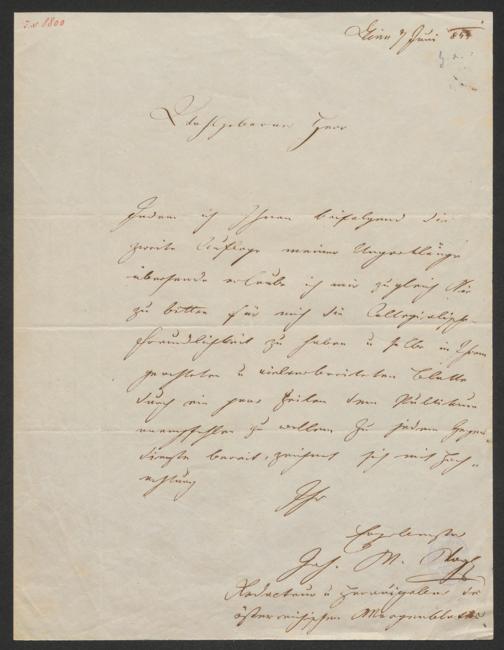 I.N. 8800
Wien 7 Juni 84
Wohlgeborner Herr
Indem ich Ihnen beifolgend die
zweite Auflage meiner
übersende erlaube ich mir zugleich Sie
zu bitten für mich die Collegialische
Freundlichkeit zu haben u selbe in Ihrem
geachteten u vielverbreiteten Blatte
durch ein paar Zeilen dem Publikum
anempfehlen zu wollen Zu jedem Gegen
dienste bereit, zeichnet sich mit Hoch=
achtung
Ihr
Ergebenster
Joh. N. Vogl
Redacteur u Herausgeber des
österreichischen Morgenblattes